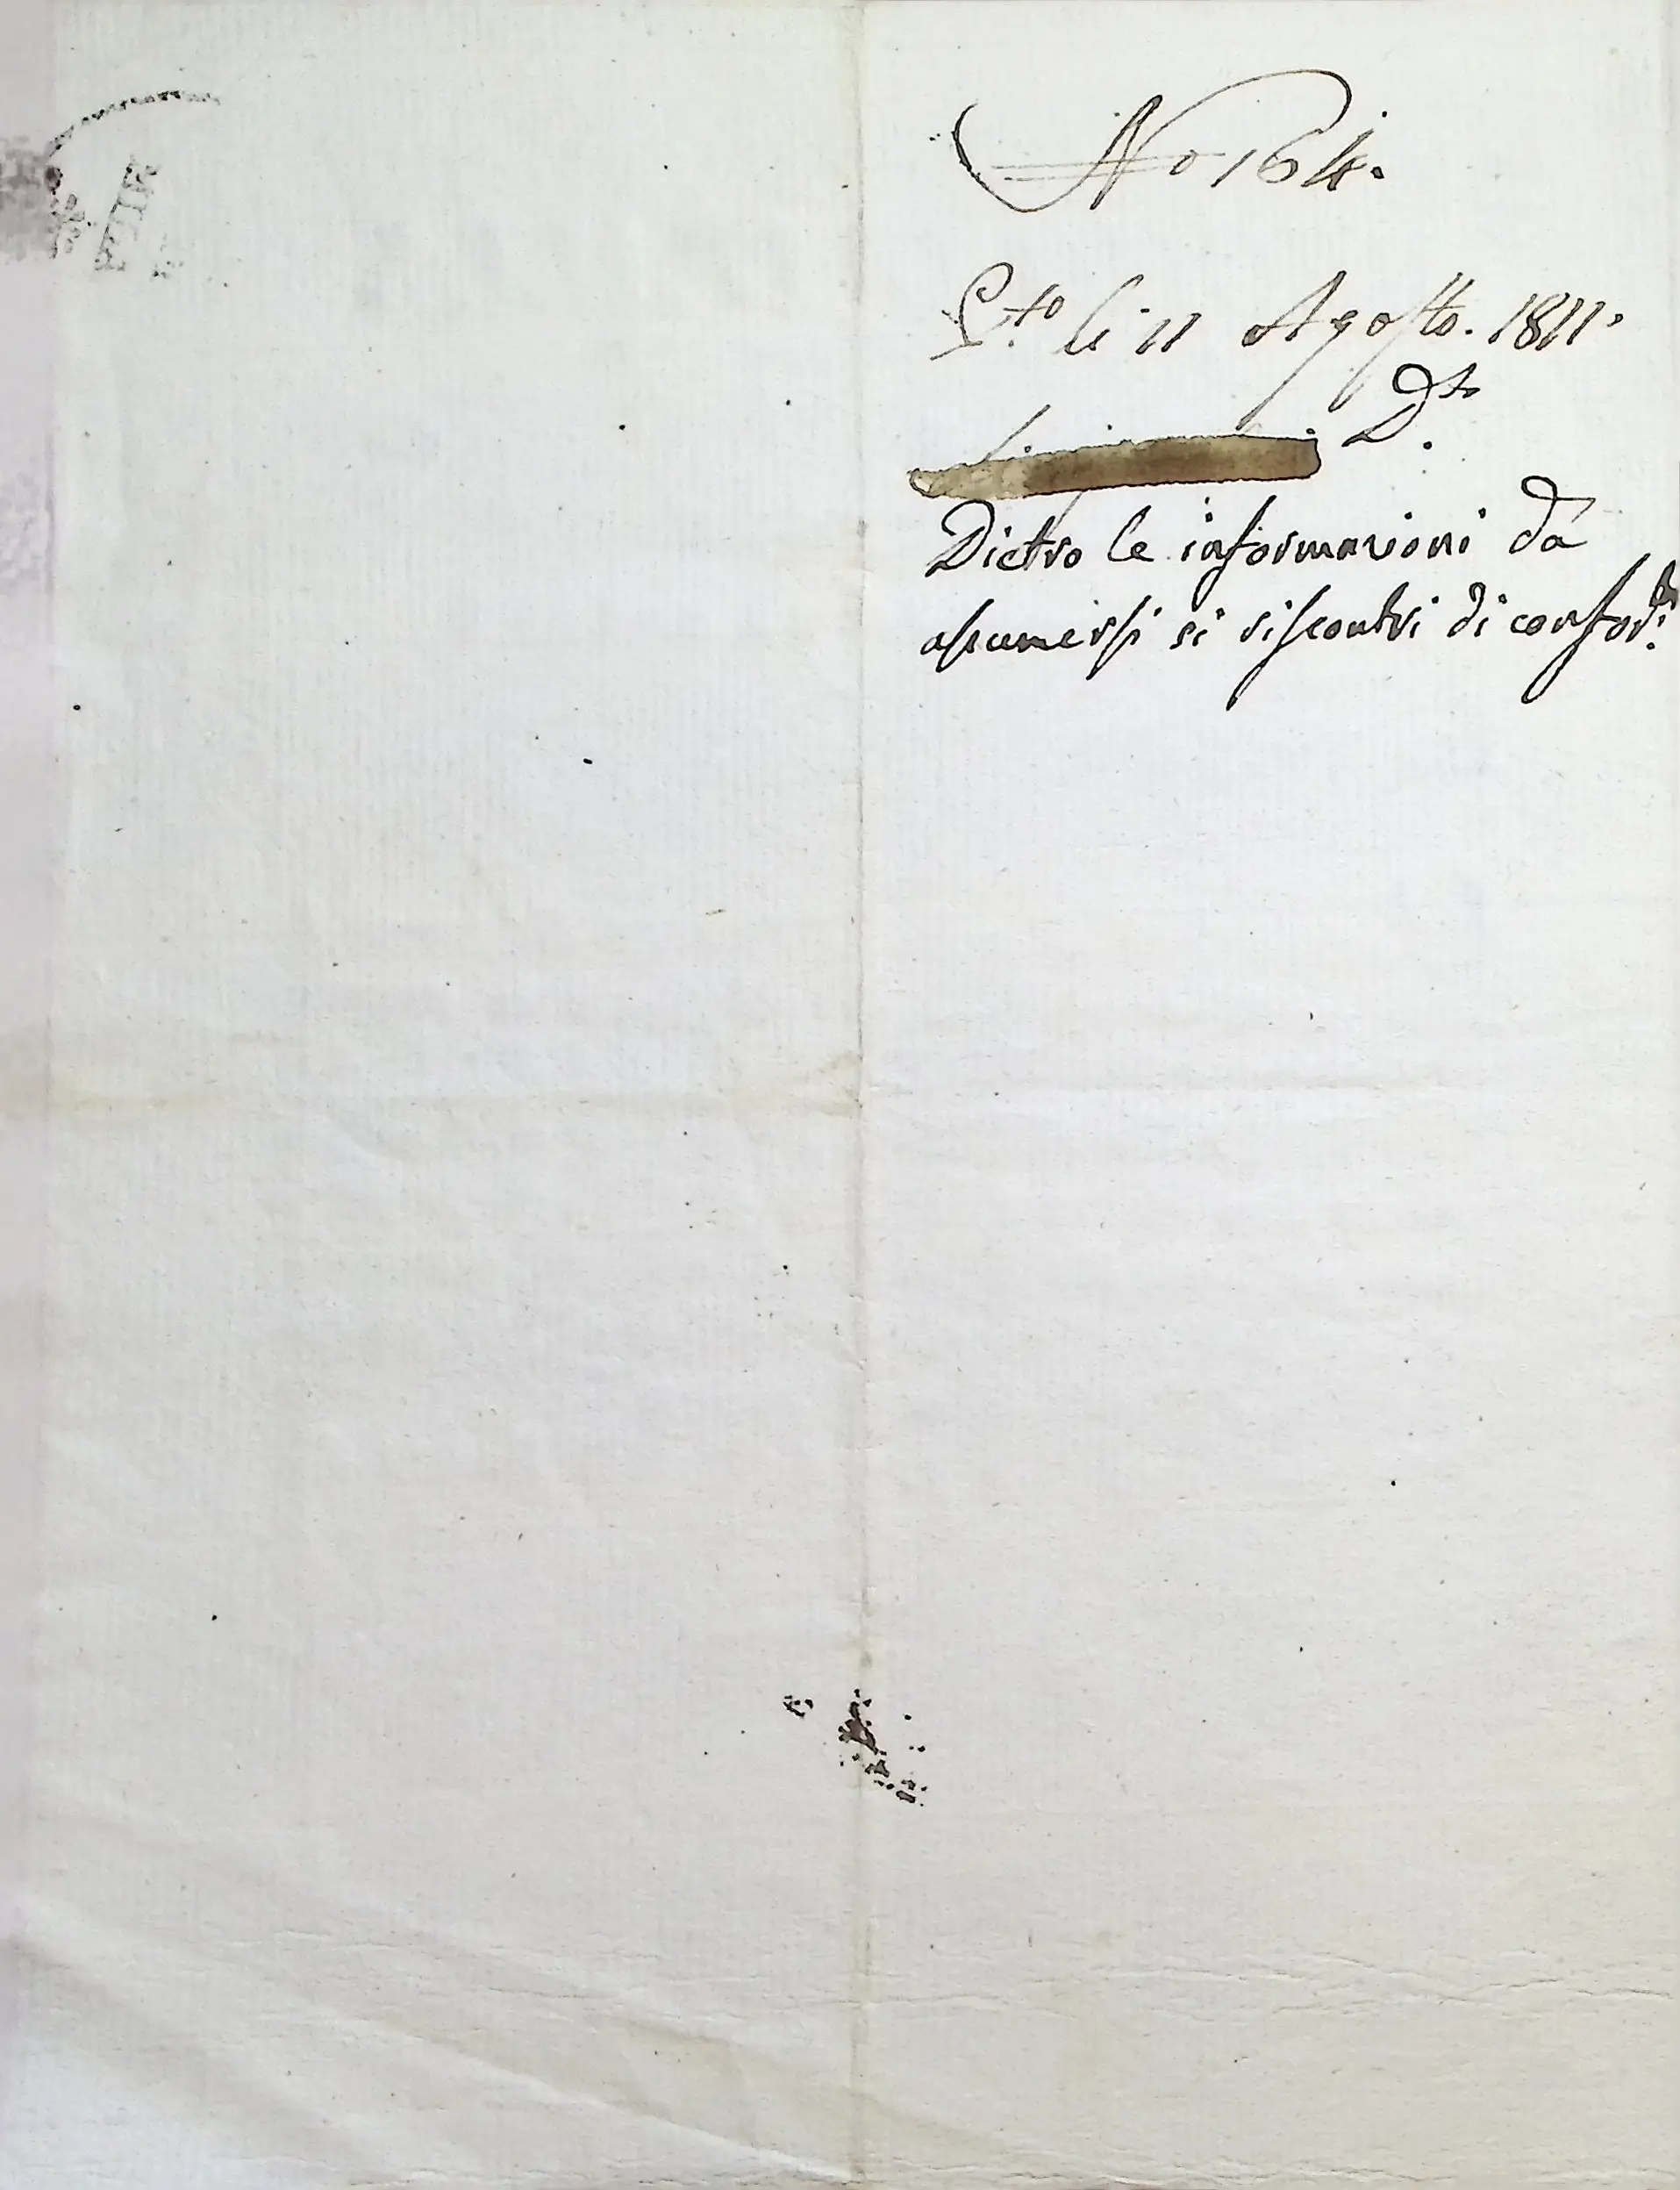 No 164.
P.to li 11 Agosto. 1811.
D.to
Dietro le informazioni da
assumersi si riscontri di confor.